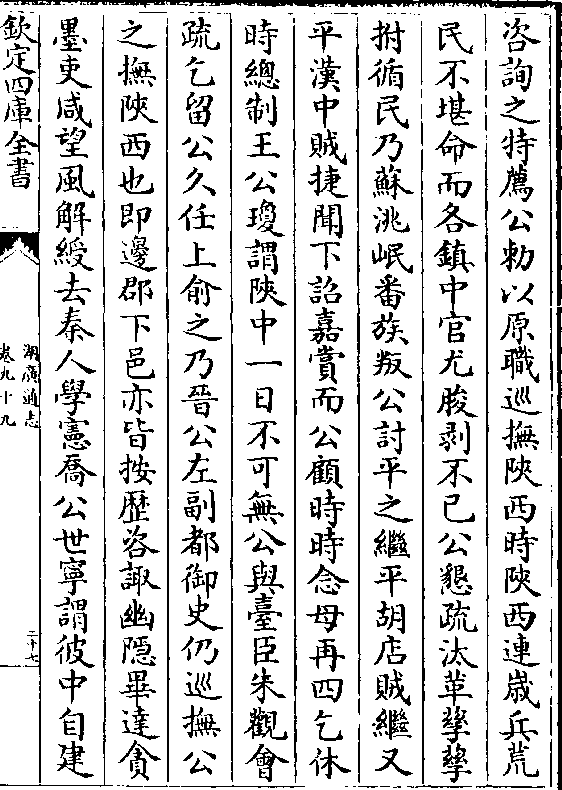 咨詢之特薦公勅以原職巡撫陜西時陜西連歲兵荒
民不堪命而各鎮中官尤朘剥不已公懇疏汰革孳孳
拊循民乃蘇洮岷番族叛公討平之繼平胡店賊繼又
平漢中賊捷聞下詔嘉賞而公顧時時念母再四乞休
時總制王公瓊謂陜中一日不可無公與臺臣朱觀會
疏乞留公久任上俞之乃晉公左副都御史仍巡撫公
之撫陜西也即邊郡下邑亦皆按歷咨諏幽隠畢達貪
墨吏咸望風解綬去秦人學憲喬公世寧謂彼中自建
欽定四庫全書
湖廣通志
卷九十九
二十七